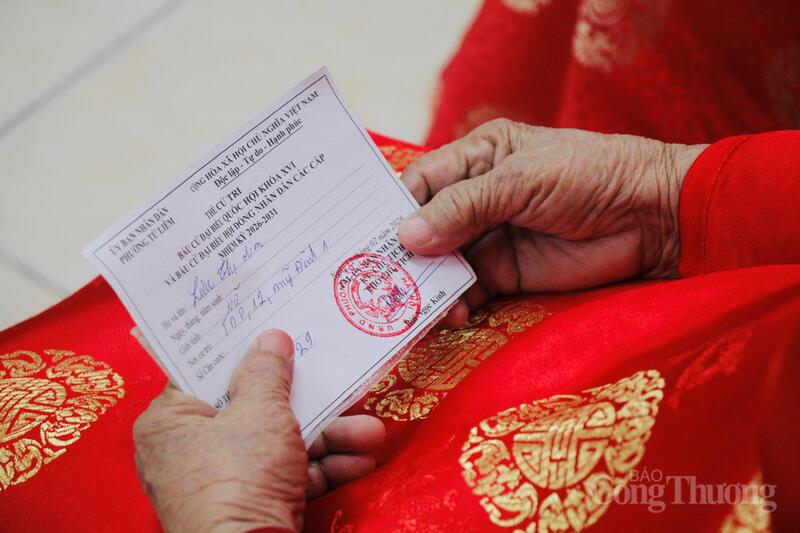 ỦY BAN NHÂN DÂN
PHƯỜNG TỪ LIÊM
CỘNG HÒA XÃ HỘI CHỦ NGHĨA VIỆT NAM
Độc lập - Tự do - Hạnh phúc
THẺ CỬ TRI
BẦU CỬ ĐẠI BIỂU QUỐC HỘI KHÓA XVI
VÀ BẦU CỬ ĐẠI BIỂU HỘI ĐỒNG NHÂN DÂN CÁC CẤP
NHIỆM KỲ 2026-2031
Họ và tên: Lưu Thị
Ngày, tháng, năm sinh:
Giới tính: Nữ
Nơi cư trú: TDP 12, Mỹ Đình 1
Số Căn cước:
29
02 năm 2026
BAN NHÂN
TỊCH
Ngọc Kính
BÁO
Công Thương